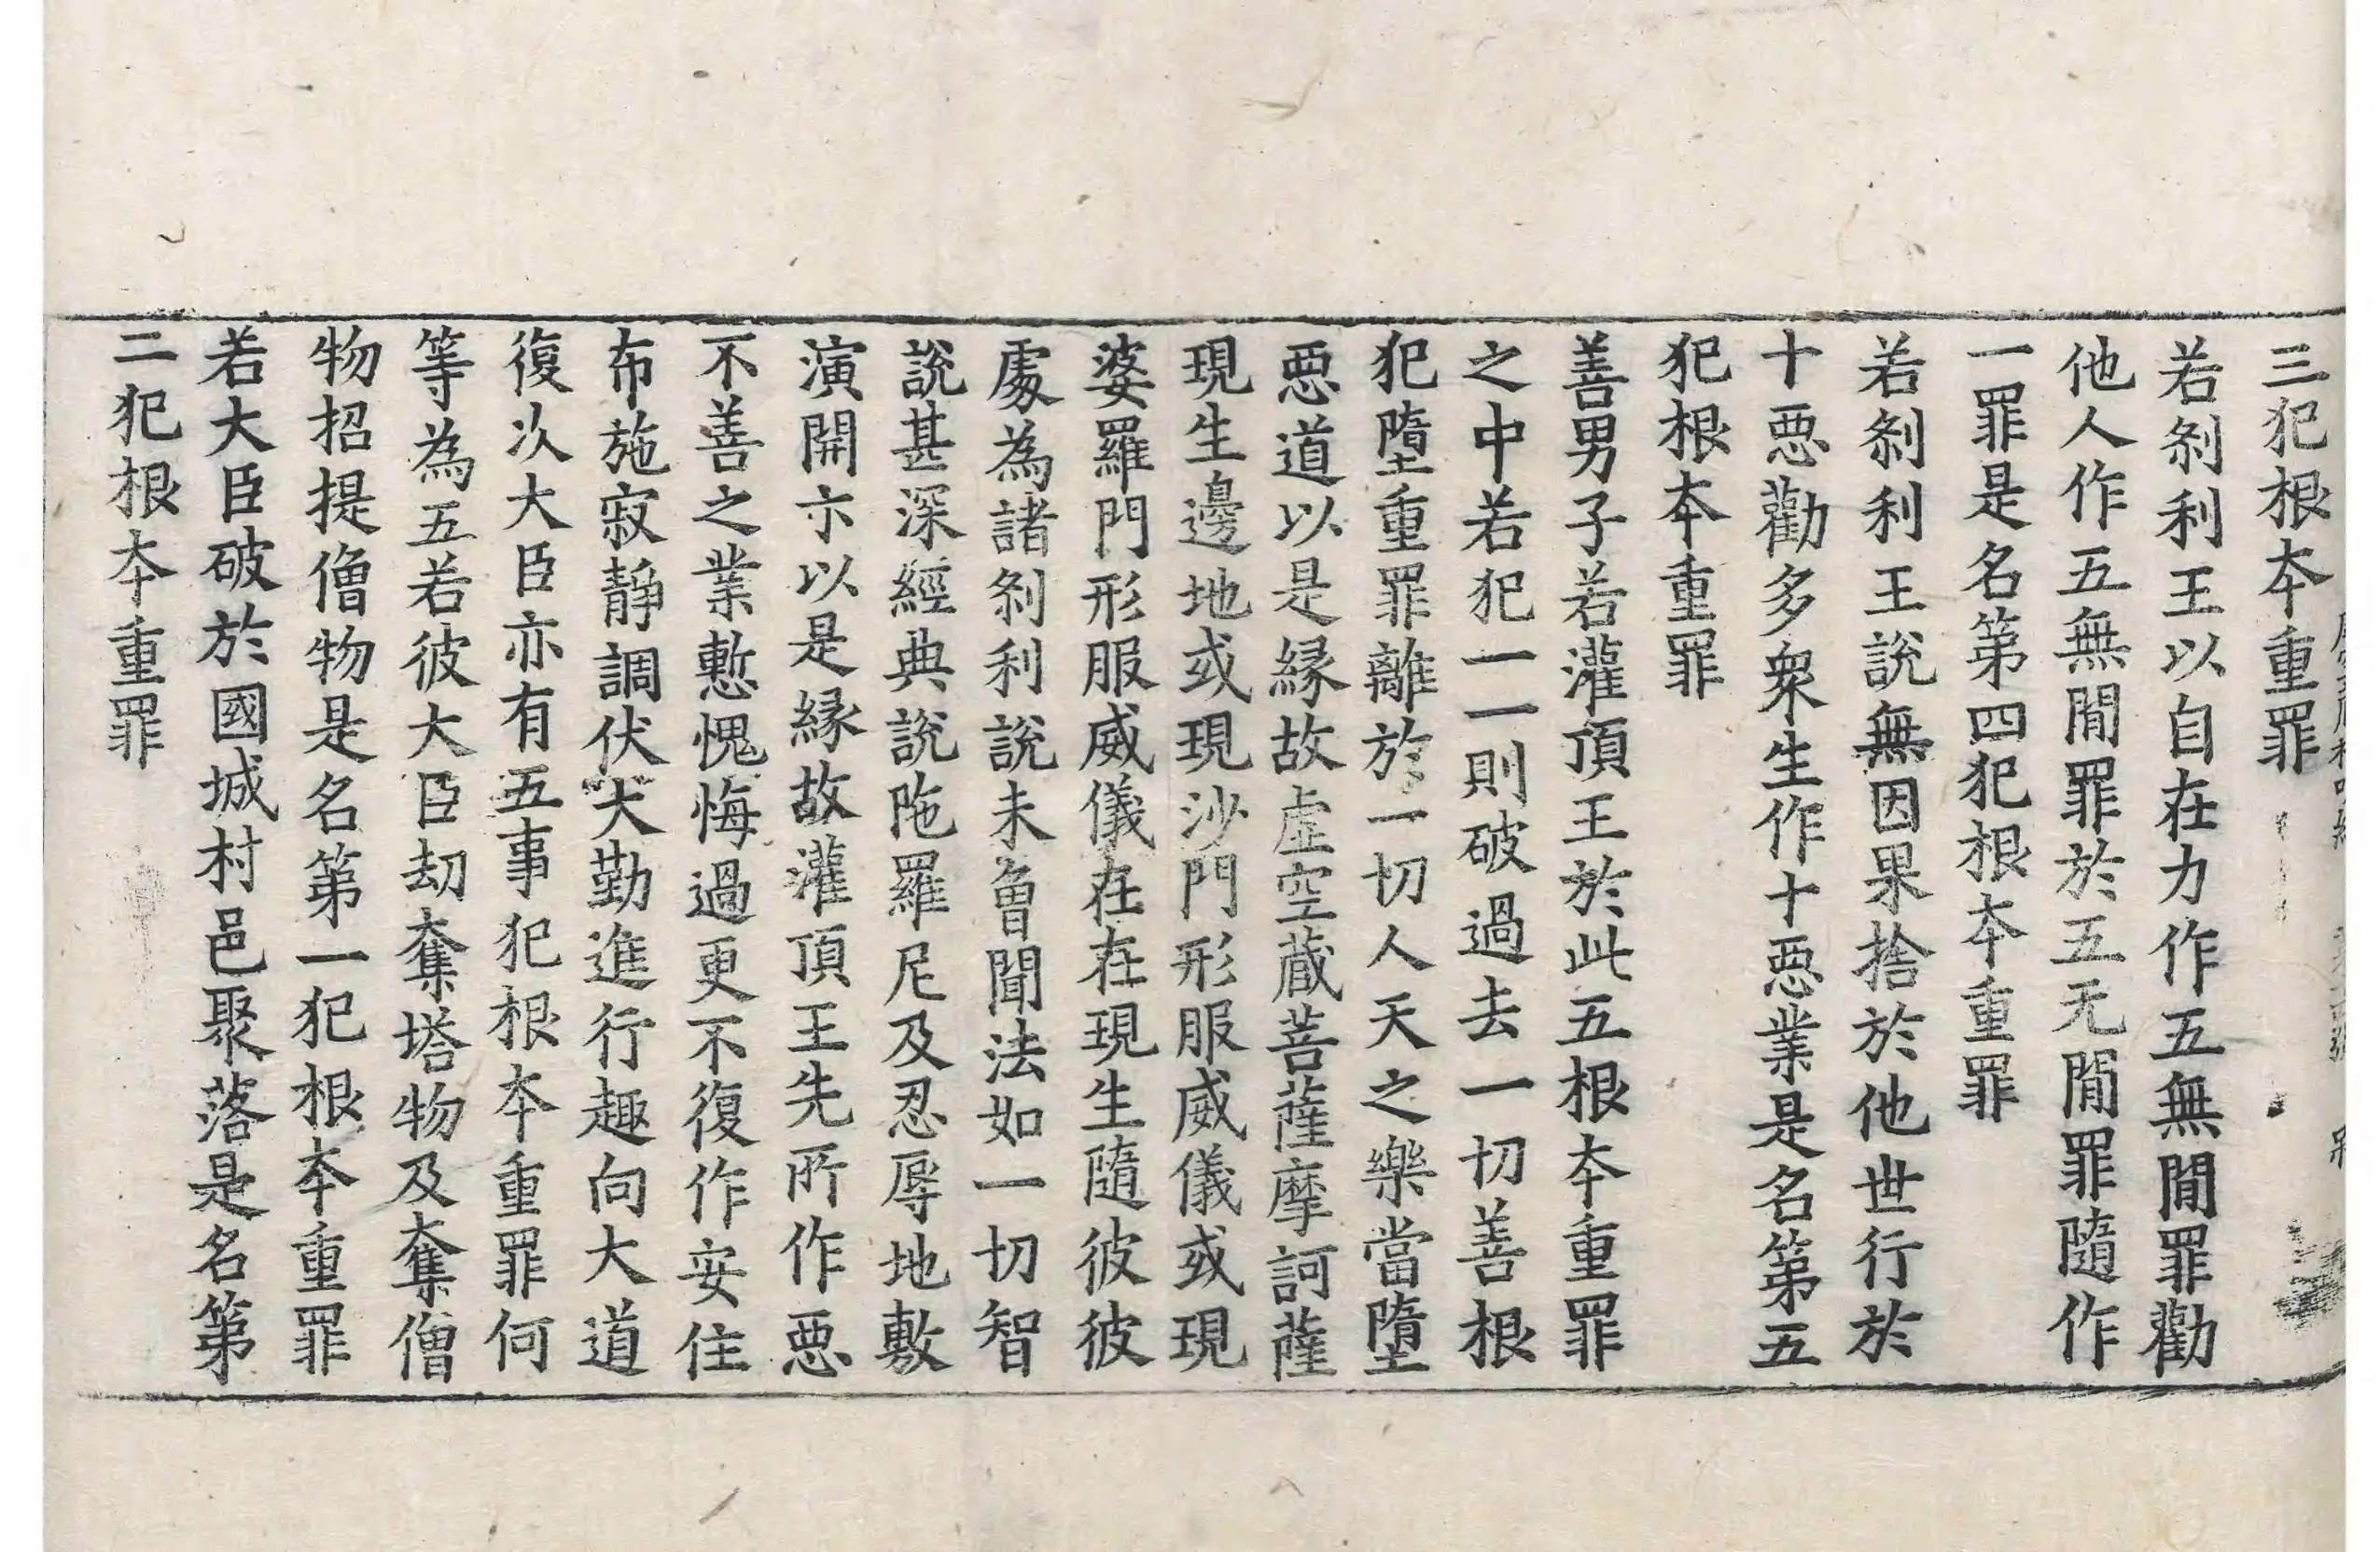 三犯根夲重罪
若刹利王以自在力作五無間罪勸
他人作五無間罪於五无間罪隨作
一罪是名第四犯根夲重罪
若刹利王說無因果捨於他世行於
十惡勸多衆生作十惡業是名第五
犯根夲重罪
善男子若灌頂王於此五根夲重罪
之中若犯一一則破過去一切善根
犯墮重罪離於一切人天之樂當墮
惡道以是縁故虛空蔵菩薩摩訶薩
現生邊地或現沙門形服威儀或現
婆羅門形服威儀在在現生隨彼彼
處為諸刹利說未曾聞法如一切智
說甚深經典說陁羅尼及忍辱地敷
演開示以是縁故灌頂王先所作惡
不善之業慙愧悔過更不復作安住
布施寂靜調伏大勤進行趣向大道
復次大臣亦有五事犯根夲重罪何
等為五若彼大臣劫奪塔物及奪僧
物招提僧物是名第一犯根夲重罪
若大臣破於國城村邑聚落是名第
二犯根夲重罪